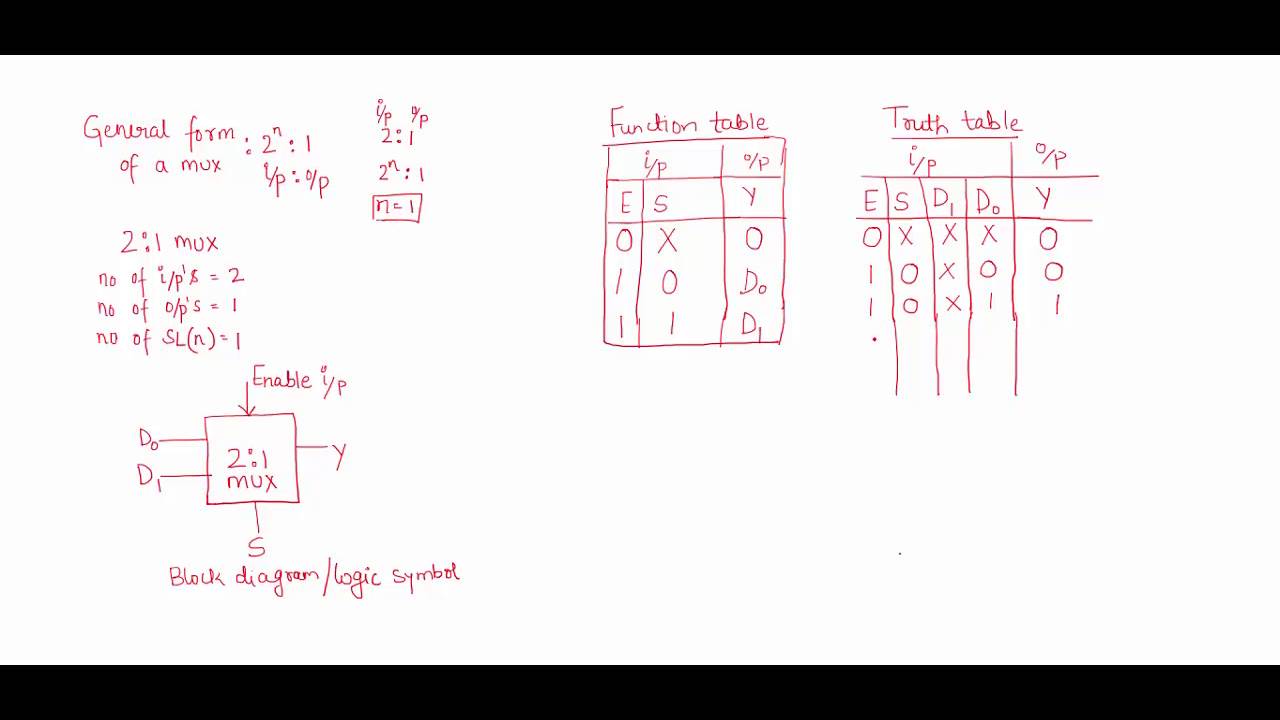 General form : 2ⁿ : 1
of a mux i/p : o/p
i/p o/p
2:1
2ⁿ : 1
n=1
2:1 mux
no of i/p's = 2
no of o/p's = 1
no of SL(n)=1
Enable i/p
D₀
D₁
2:1
mux
Y
S
Block diagram/logic symbol
Function table
i/p o/p
E S Y
0 X 0
1 0 D₀
1 1 D₁
Truth table
i/p o/p
E S D₁ D₀ Y
0 X X X 0
1 0 X 0 0
1 0 X 1 1